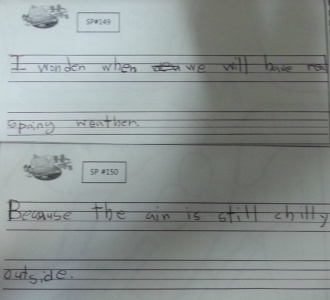 SP#149
I wonder when we will have real
spring weather.
SP #150
Because the air is still chilly
outside.